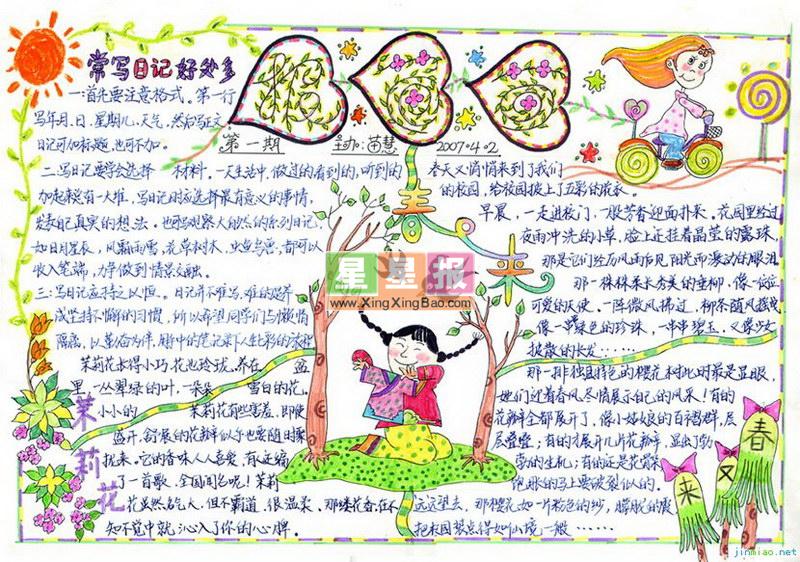 常写日记好处多
一.首先要注意格式。第一行
写年月、日、星期几、天气,然后写正文
日记可加标题,也可不加。
二.写日记要学会选择 材料。一天生活中,做过的看到的,听到的
加起来总有一大堆。写日记时应选择最有意义的事情,
发表自己真实的想法。也可写观察大自然的系列日记,
如日月星辰,风霜雨雪,花草树木,虫鱼鸟兽,都可以
收入笔端,力争做到情景交融。
三.写日记应持之以恒。日记并不难写,难的是养
成坚持不懈的习惯,所以希望同学们与懒惰
隔离,以勤俭为伴,
第一期 主办:苗慧 2007.4.2
春天又悄悄来到了我们
的校园,给校园披上了五彩的花衣。
早晨,一走进校门,一股芳香迎面扑来。花园里经过
夜雨冲洗的小草,脸上还挂着晶莹的露珠
那一株株来长秀美的垂柳,像一位位
可爱的天使。一阵微风拂过,柳条随风摇曳
像一串绿色的珍珠,一串串碧玉,又像少女
披散的长发……
那一排独具特色的樱花树此时最是显眼,
她们迎着春风尽情展示自己的风采!有的
花瓣全都展开了,像小姑娘的百褶裙,层
层叠叠;有的才展开几片花瓣,显出了勃
勃的生机;有的还是花骨朵
饱胀的马上要破裂似的。
远远望去,那樱花如一片粉色的纱,朦胧的震
把校园装点得如仙境一般……
春 来
星星报
www.XingXingBao.com
茉莉花
茉莉花长得小巧,花也玲珑。养在 盆
里,一丛翠绿的叶,一朵朵 雪白的花。
小小的 茉莉花有些害羞,即使
盛开,舒展的花瓣似乎也要随时聚
拢来。它的香味人人喜爱,有人还编
了一首歌,全国闻名呢!茉莉
花虽然名气大,但不霸道,很温柔。那缕花香在不
知不觉中就沁入了你的心脾。
春又来
jinmiao.net